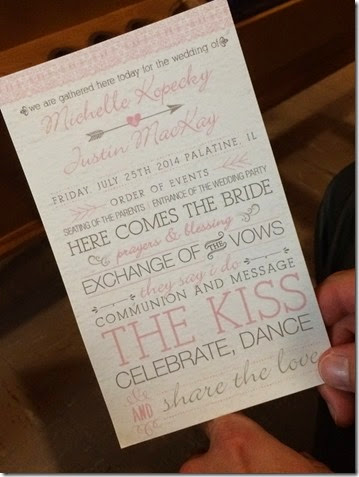 we are gathered here today for the wedding of
Michelle Kopecky
Justin MacKay
FRIDAY, JULY 25TH 2014 PALATINE, IL
ORDER OF EVENTS
SEATING OF THE PARENTS | ENTRANCE OF THE WEDDING PARTY
HERE COMES THE BRIDE
prayers & blessing
EXCHANGE OF THE VOWS
they say i do
COMMUNION AND MESSAGE
THE KISS
CELEBRATE, DANCE
AND share the love